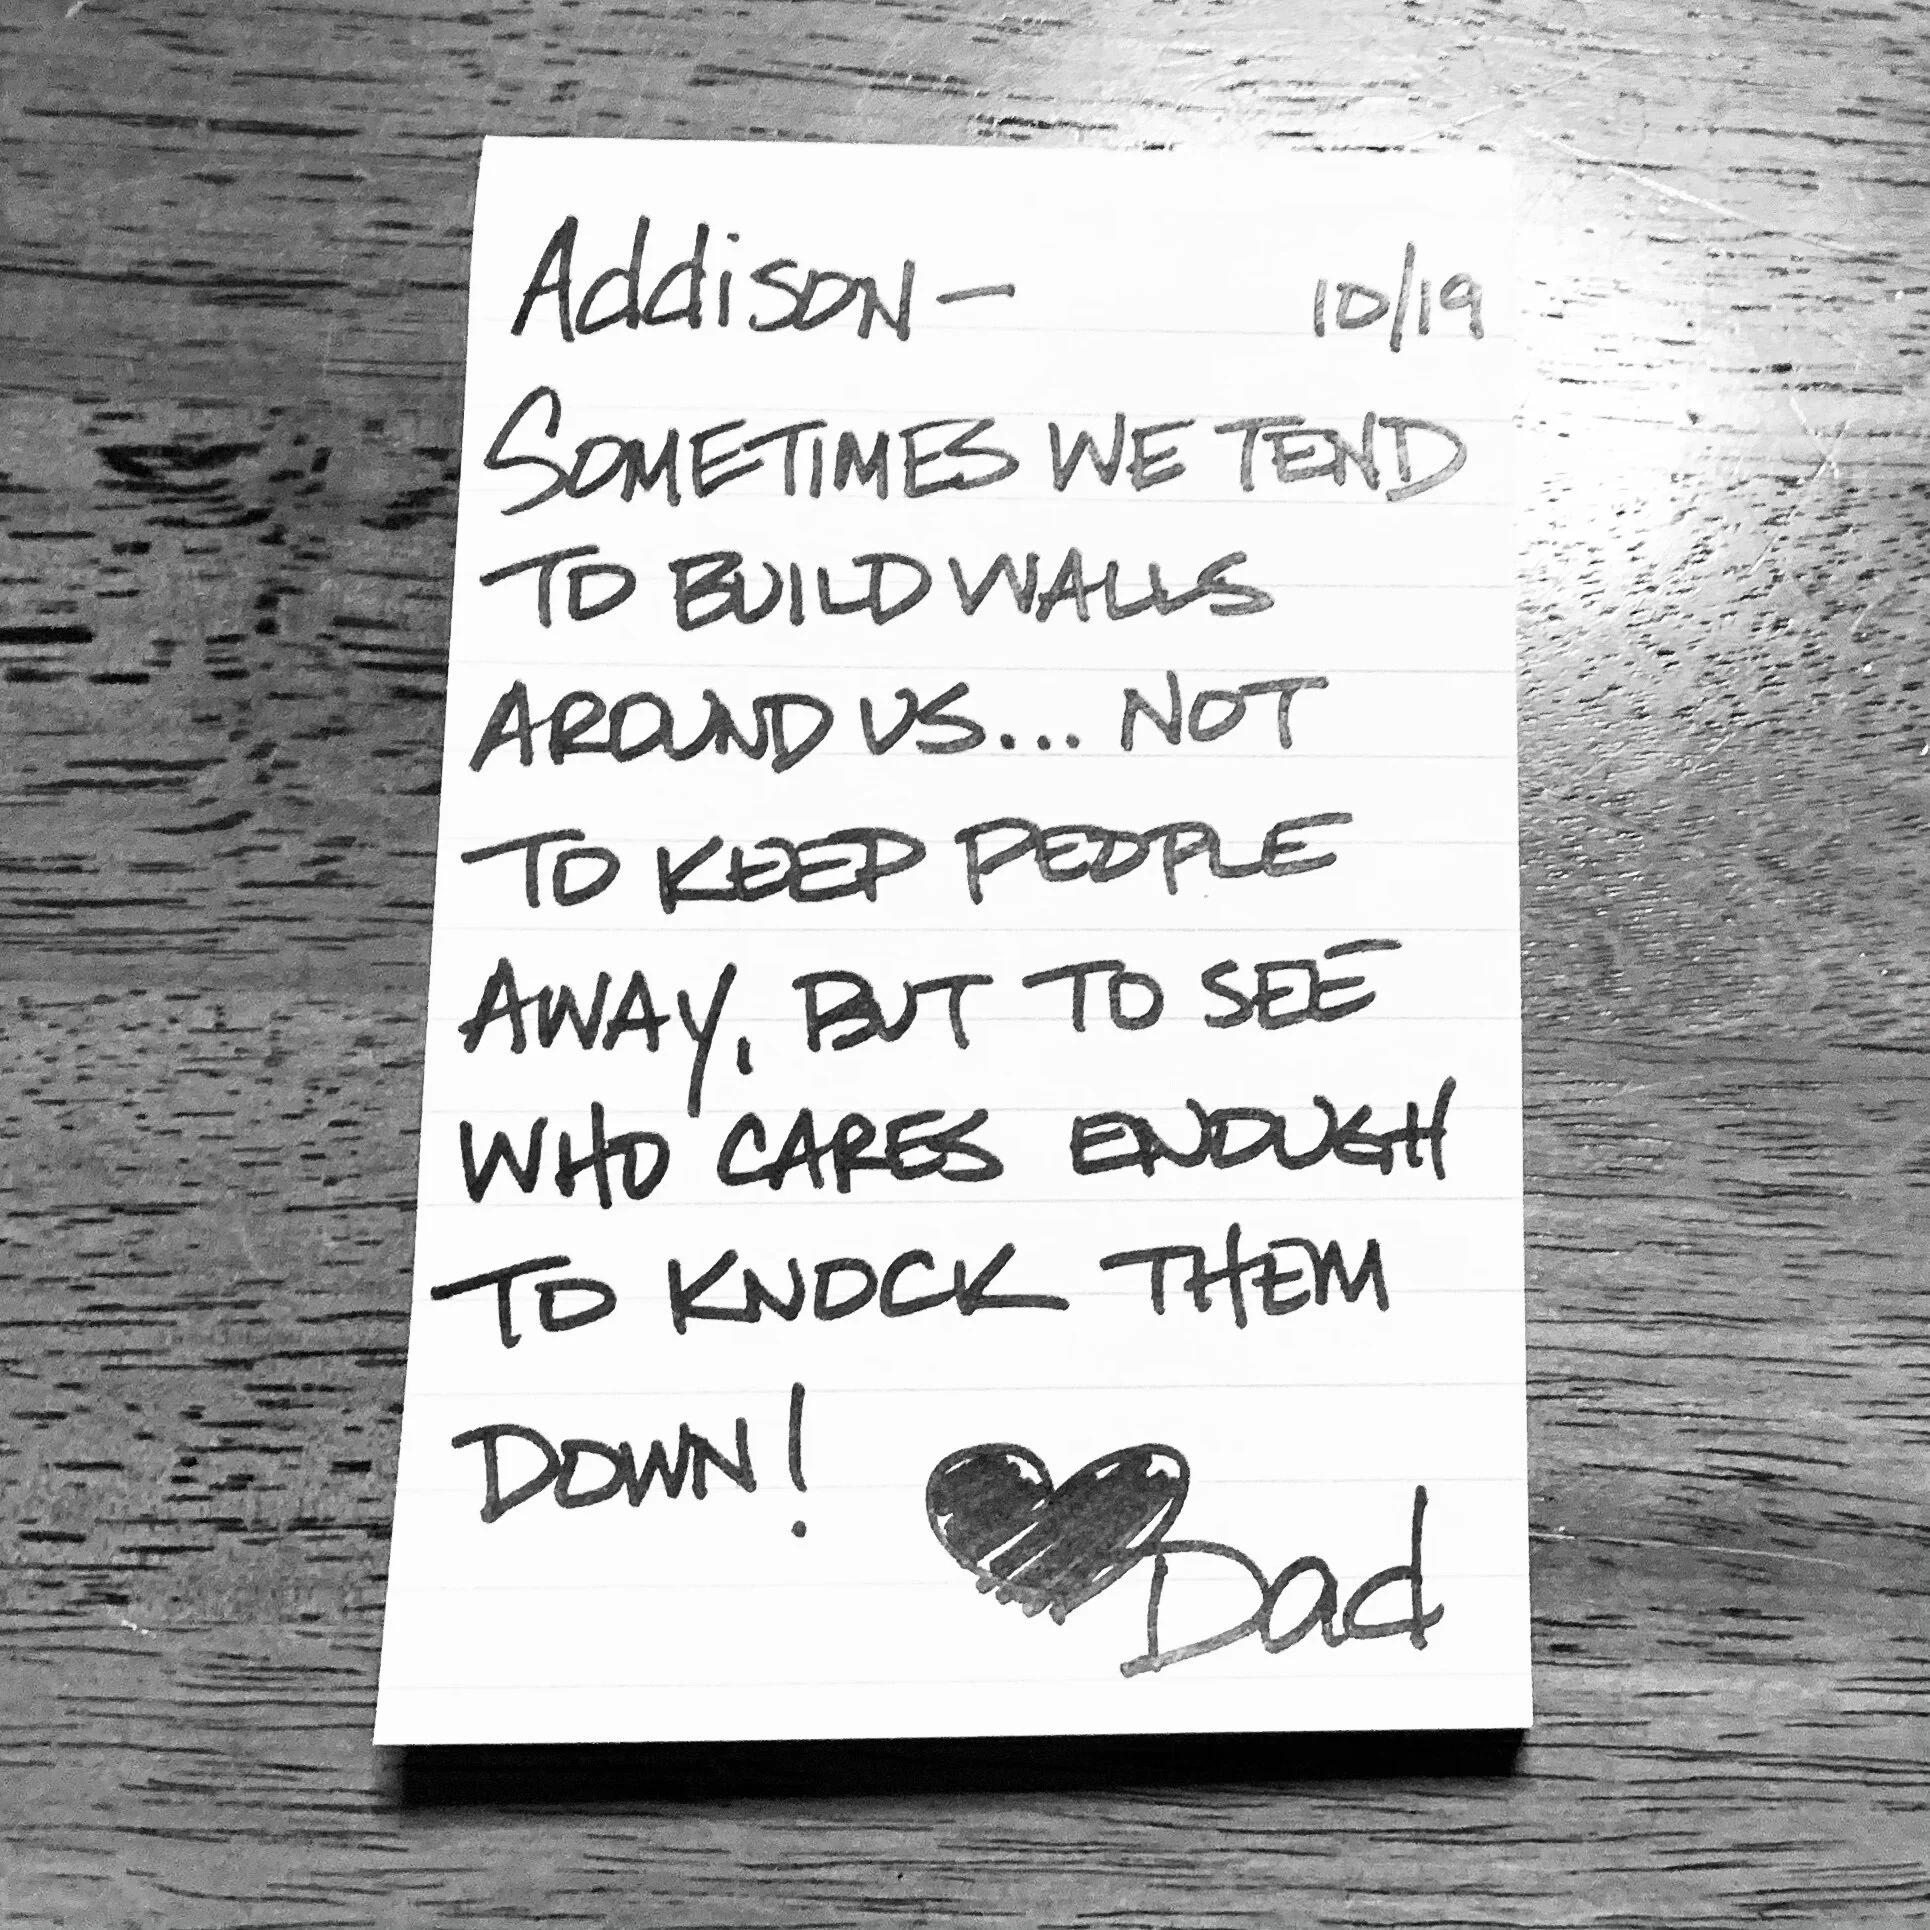 Addison- 10/19
SOMETIMES WE TEND
TO BUILD WALLS
AROUND US... NOT
TO KEEP PEOPLE
AWAY, BUT TO SEE
WHO CARES ENOUGH
TO KNOCK THEM
DOWN!
Dad